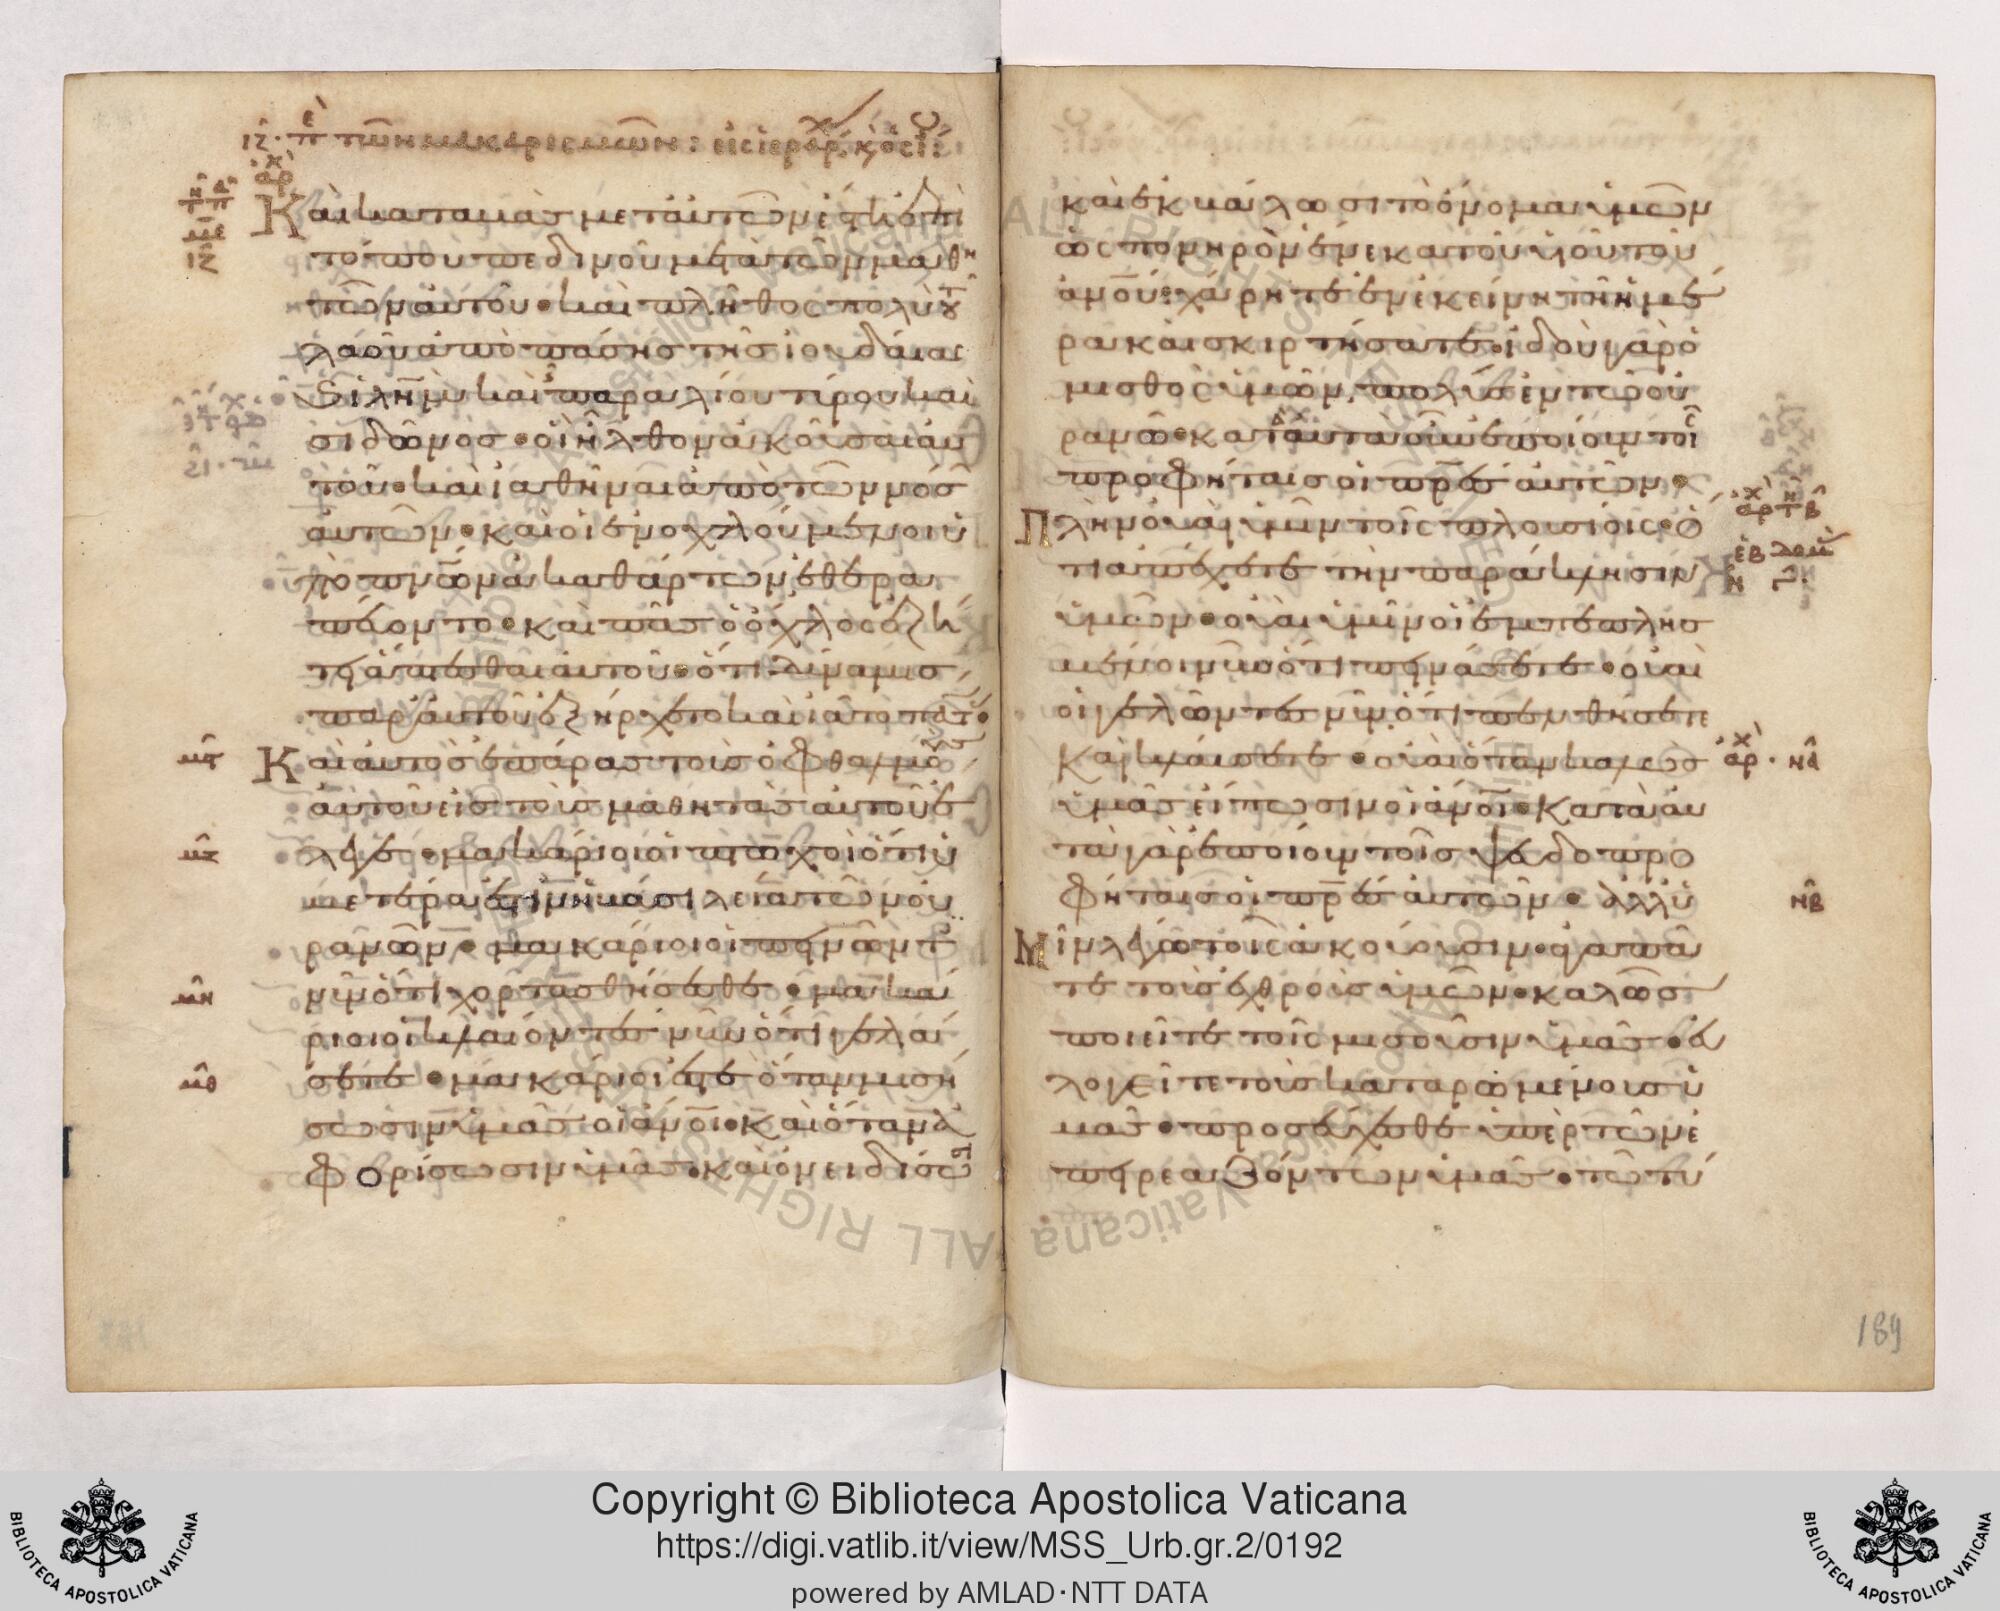 Καὶ καταβὰς μετ' αὐτῶν ἔστη ἐπὶ
τόπου πεδινοῦ
τῶν αὐτοῦ· καὶ πλῆθος πολὺ τοῦ
λαοῦ ἀπὸ πάσης τῆς ἰουδαίας
καὶ ἰλημ καὶ παραλίου τύρου καὶ
σιδῶνος· οἳ ἦλθον ἀκοῦσαι αὐ
τοῦ· καὶ ἰαθῆναι ἀπὸ τῶν νόσ
αὐτῶν· καὶ οἱ ἐνοχλούμενοι ὑ
πὸ πνῶν ἀκαθάρτων ἐθερα
πεύοντο· καὶ πᾶς ὁ ὄχλος ἐζή
τει ἅπτεσθαι αὐτοῦ· ὅτι δύναμις
παρ' αὐτοῦ ἐξήρχετο καὶ ἰᾶτο παντ
Καὶ αὐτὸς ἐπάρας τοὺς ὀφθαλμοὺς
αὐτοῦ εἰς τοὺς μαθητὰς αὐτοῦ ἔ
λεγε· μακάριοι οἱ πτωχοὶ ὅτι ὑ
μετέρα ἐστὶν ἡ βασιλεία τῶν οὐ
ρανῶν· μακάριοι οἱ πεινῶντ
νῦν ὅτι χορτασθήσεσθε· μακά
ριοι οἱ κλαίοντες νῦν ὅτι γελά
σετε· μακάριοί ἐστε ὅταν μισή
σωσιν ὑμᾶς οἱ ἀνοι· καὶ ὅταν ἀ
φορίσωσιν ὑμᾶς· καὶ ὀνειδίσω
καὶ ἐκβάλωσι τὸ ὄνομα ὑμῶν
ὡς πονηρὸν ἕνεκα τοῦ υἱοῦ τοῦ
ἀνου· χάρητε ἐν ἐκείνη τῆ ἡμέ
ρα καὶ σκιρτήσατε· ἰδοὺ γὰρ ὁ
μισθὸς ὑμῶν πολὺς ἐν τῶ οὐ
ρανῶ· κατὰ ταῦτα γὰρ ἐποίουν τοῖς
προφήταις οἱ πρες αὐτῶν·
Πλὴν οὐαὶ ὑμῖν τοῖς πλουσίοις· ὅ
τι ἀπέχετε τὴν παράκλησιν
ὑμῶν· οὐαὶ ὑμῖν οἱ ἐμπεπλησ
μένοι νῦν ὅτι πεινάσετε· οὐαὶ
οἱ γελῶντες νῦν ὅτι πενθήσετε
καὶ κλαύσετε· οὐαὶ ὅταν καλῶς
ὑμᾶς εἴπωσιν οἱ ἀνοι· κατὰ αὐ
τὰ γὰρ ἐποίουν τοῖς ψευδοπρο
φήταις οἱ πρες αὐτῶν· ἀλλ' ὑ
Μῖν λέγω τοῖς ἀκούουσιν· ἀγαπᾶ
τε τοὺς ἐχθροὺς ὑμῶν· καλῶς
ποιεῖτε τοῖς μισοῦσιν ὑμᾶς· εὐ
λογεῖτε τοὺς καταρωμένους ὑ
μᾶς· προσεύχεσθε ὑπὲρ τῶν ἐ
πηρεαζόντων ὑμᾶς· τῶ τύ
189
Copyright © Biblioteca Apostolica Vaticana
https://digi.vatlib.it/view/MSS_Urb.gr.2/0192
powered by AMLAD·NTT DATA
BIBLIOTECA APOSTOLICA VATICANA
BIBLIOTECA APOSTOLICA VATICANA